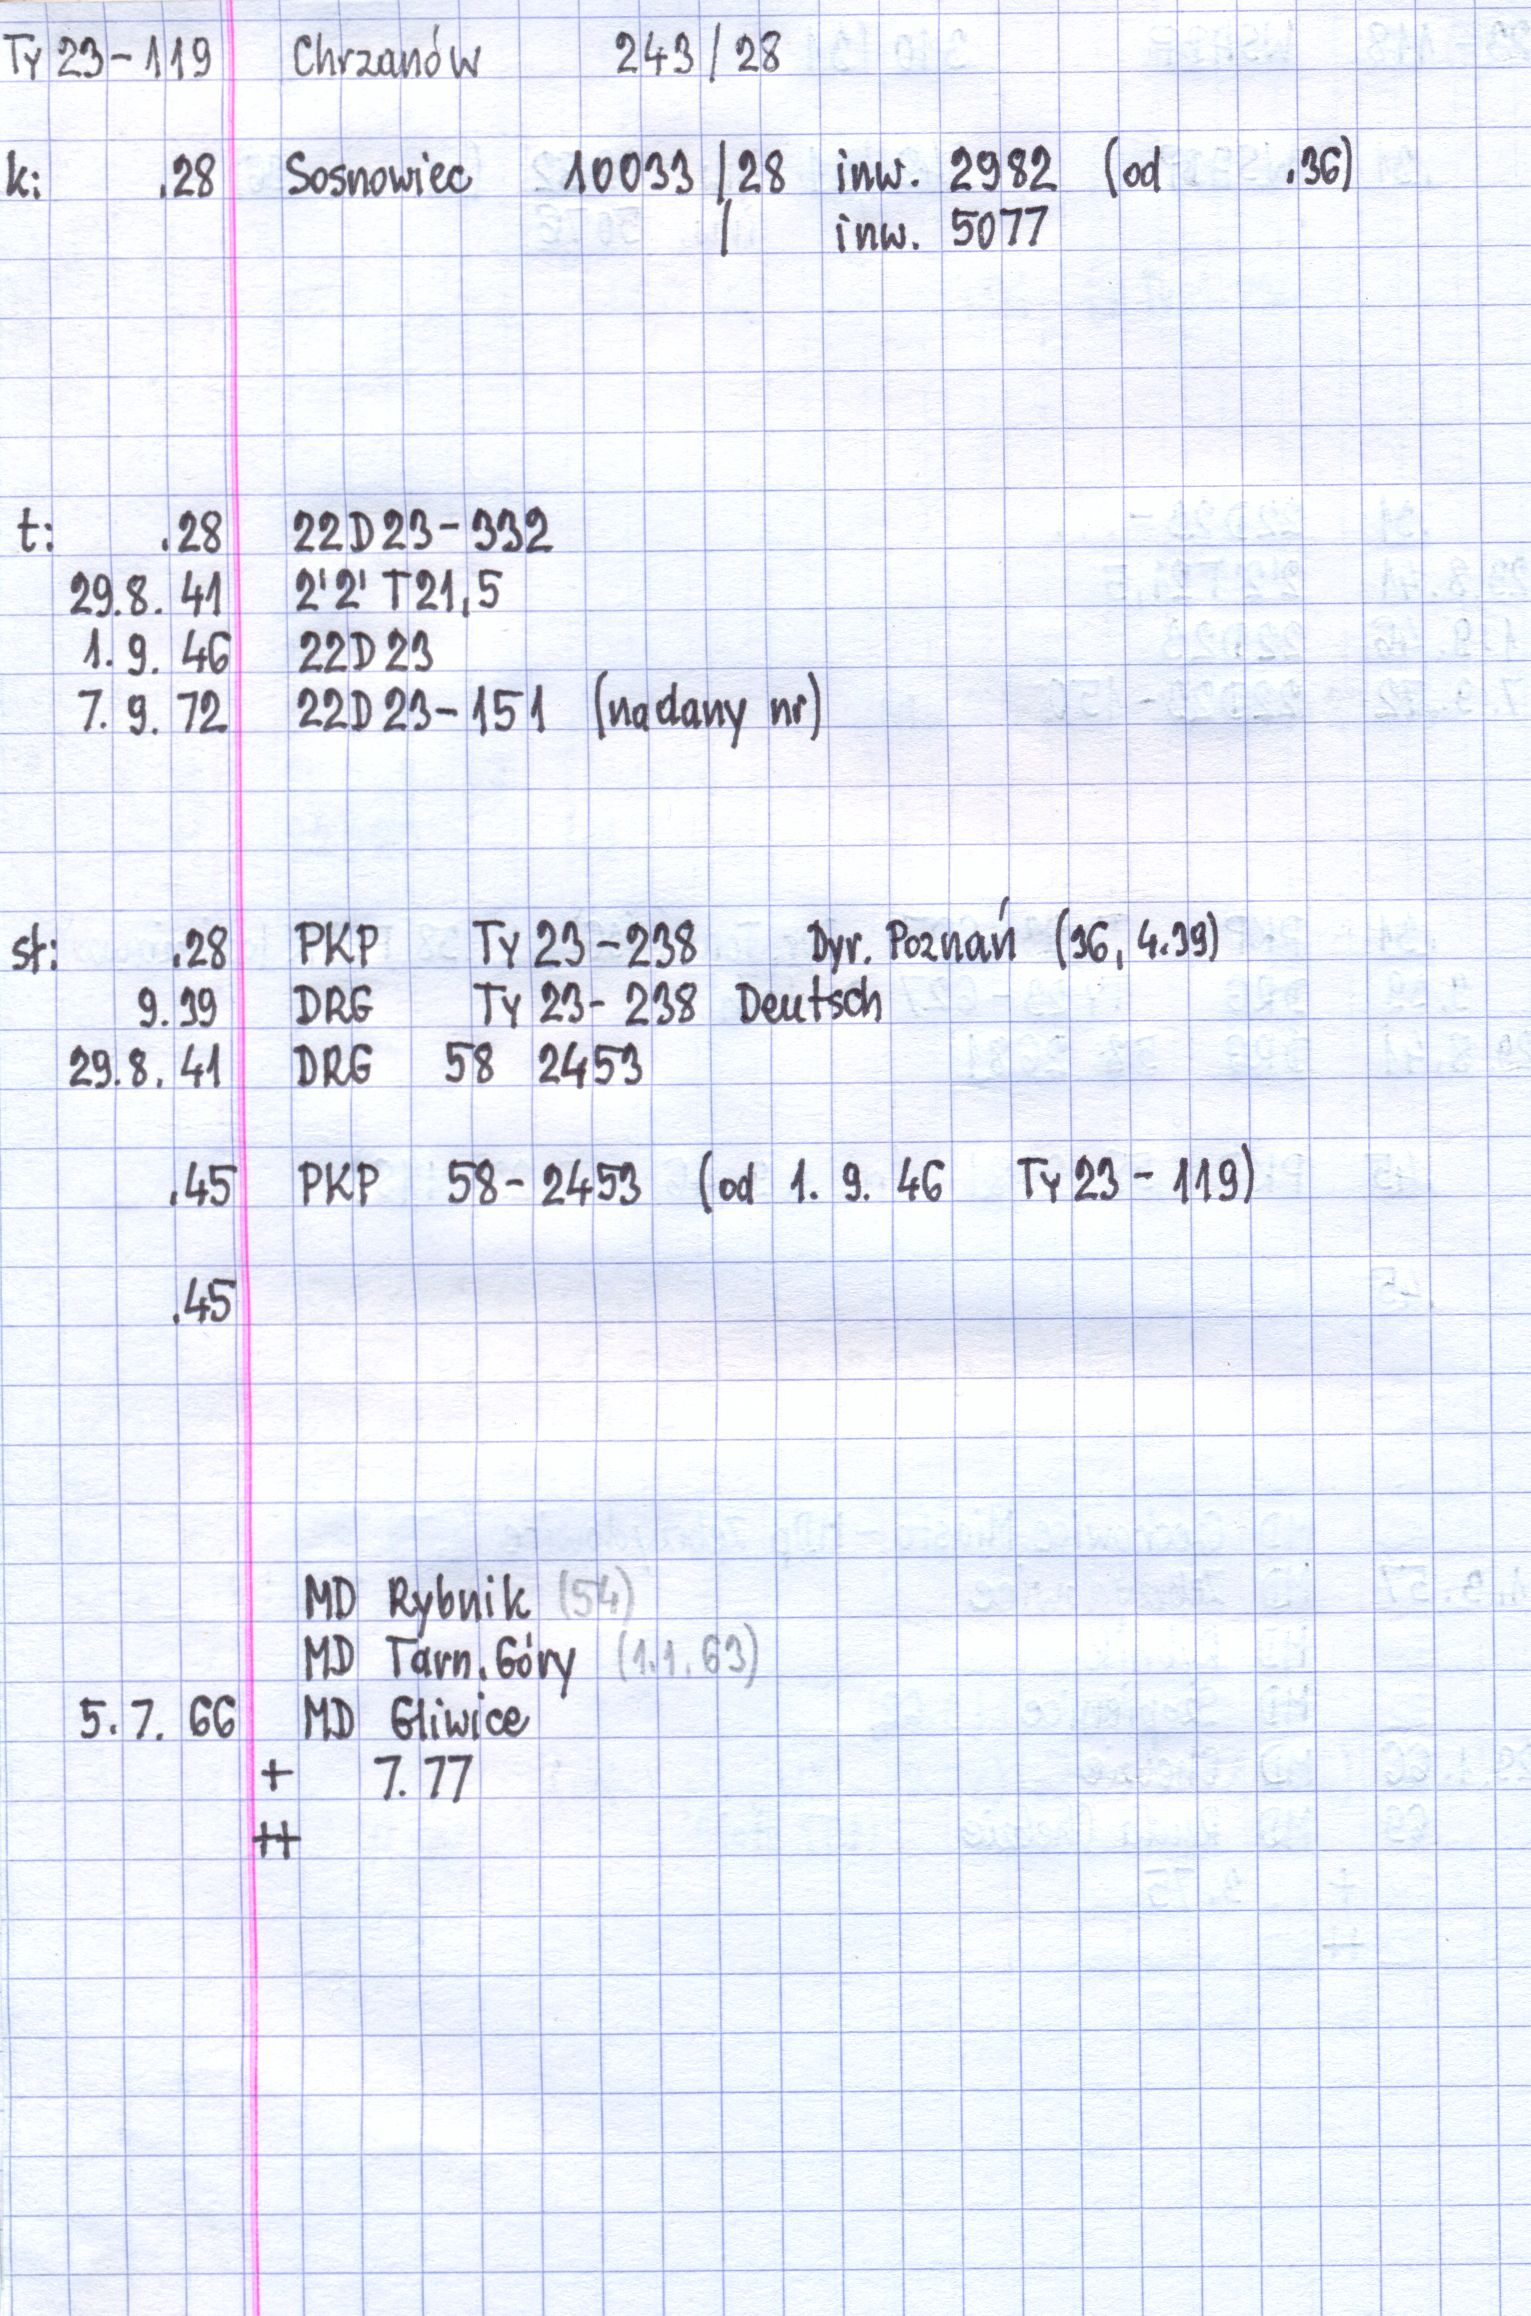 Ty 23-119 Chrzanów 243/28
k: .28 Sosnowiec 10033/28 inw. 2982 (od .36)
/ inw. 5077
t: .28 22D23-332
29.8.41 2'2' T21,5
1.9.46 22D23
7.9.72 22D23-151 (nadany nr)
st: .28 PKP Ty 23-238 Dyr. Poznań (36, 4.39)
9.39 DRG Ty 23-238 Deutsch
29.8.41 DRG 58 2453
.45 PKP 58-2453 (od 1.9.46 Ty 23-119)
.45
MD Rybnik (54)
MD Tarn. Góry (1.1.63)
5.7.66 MD Gliwice
+ 7.77
++